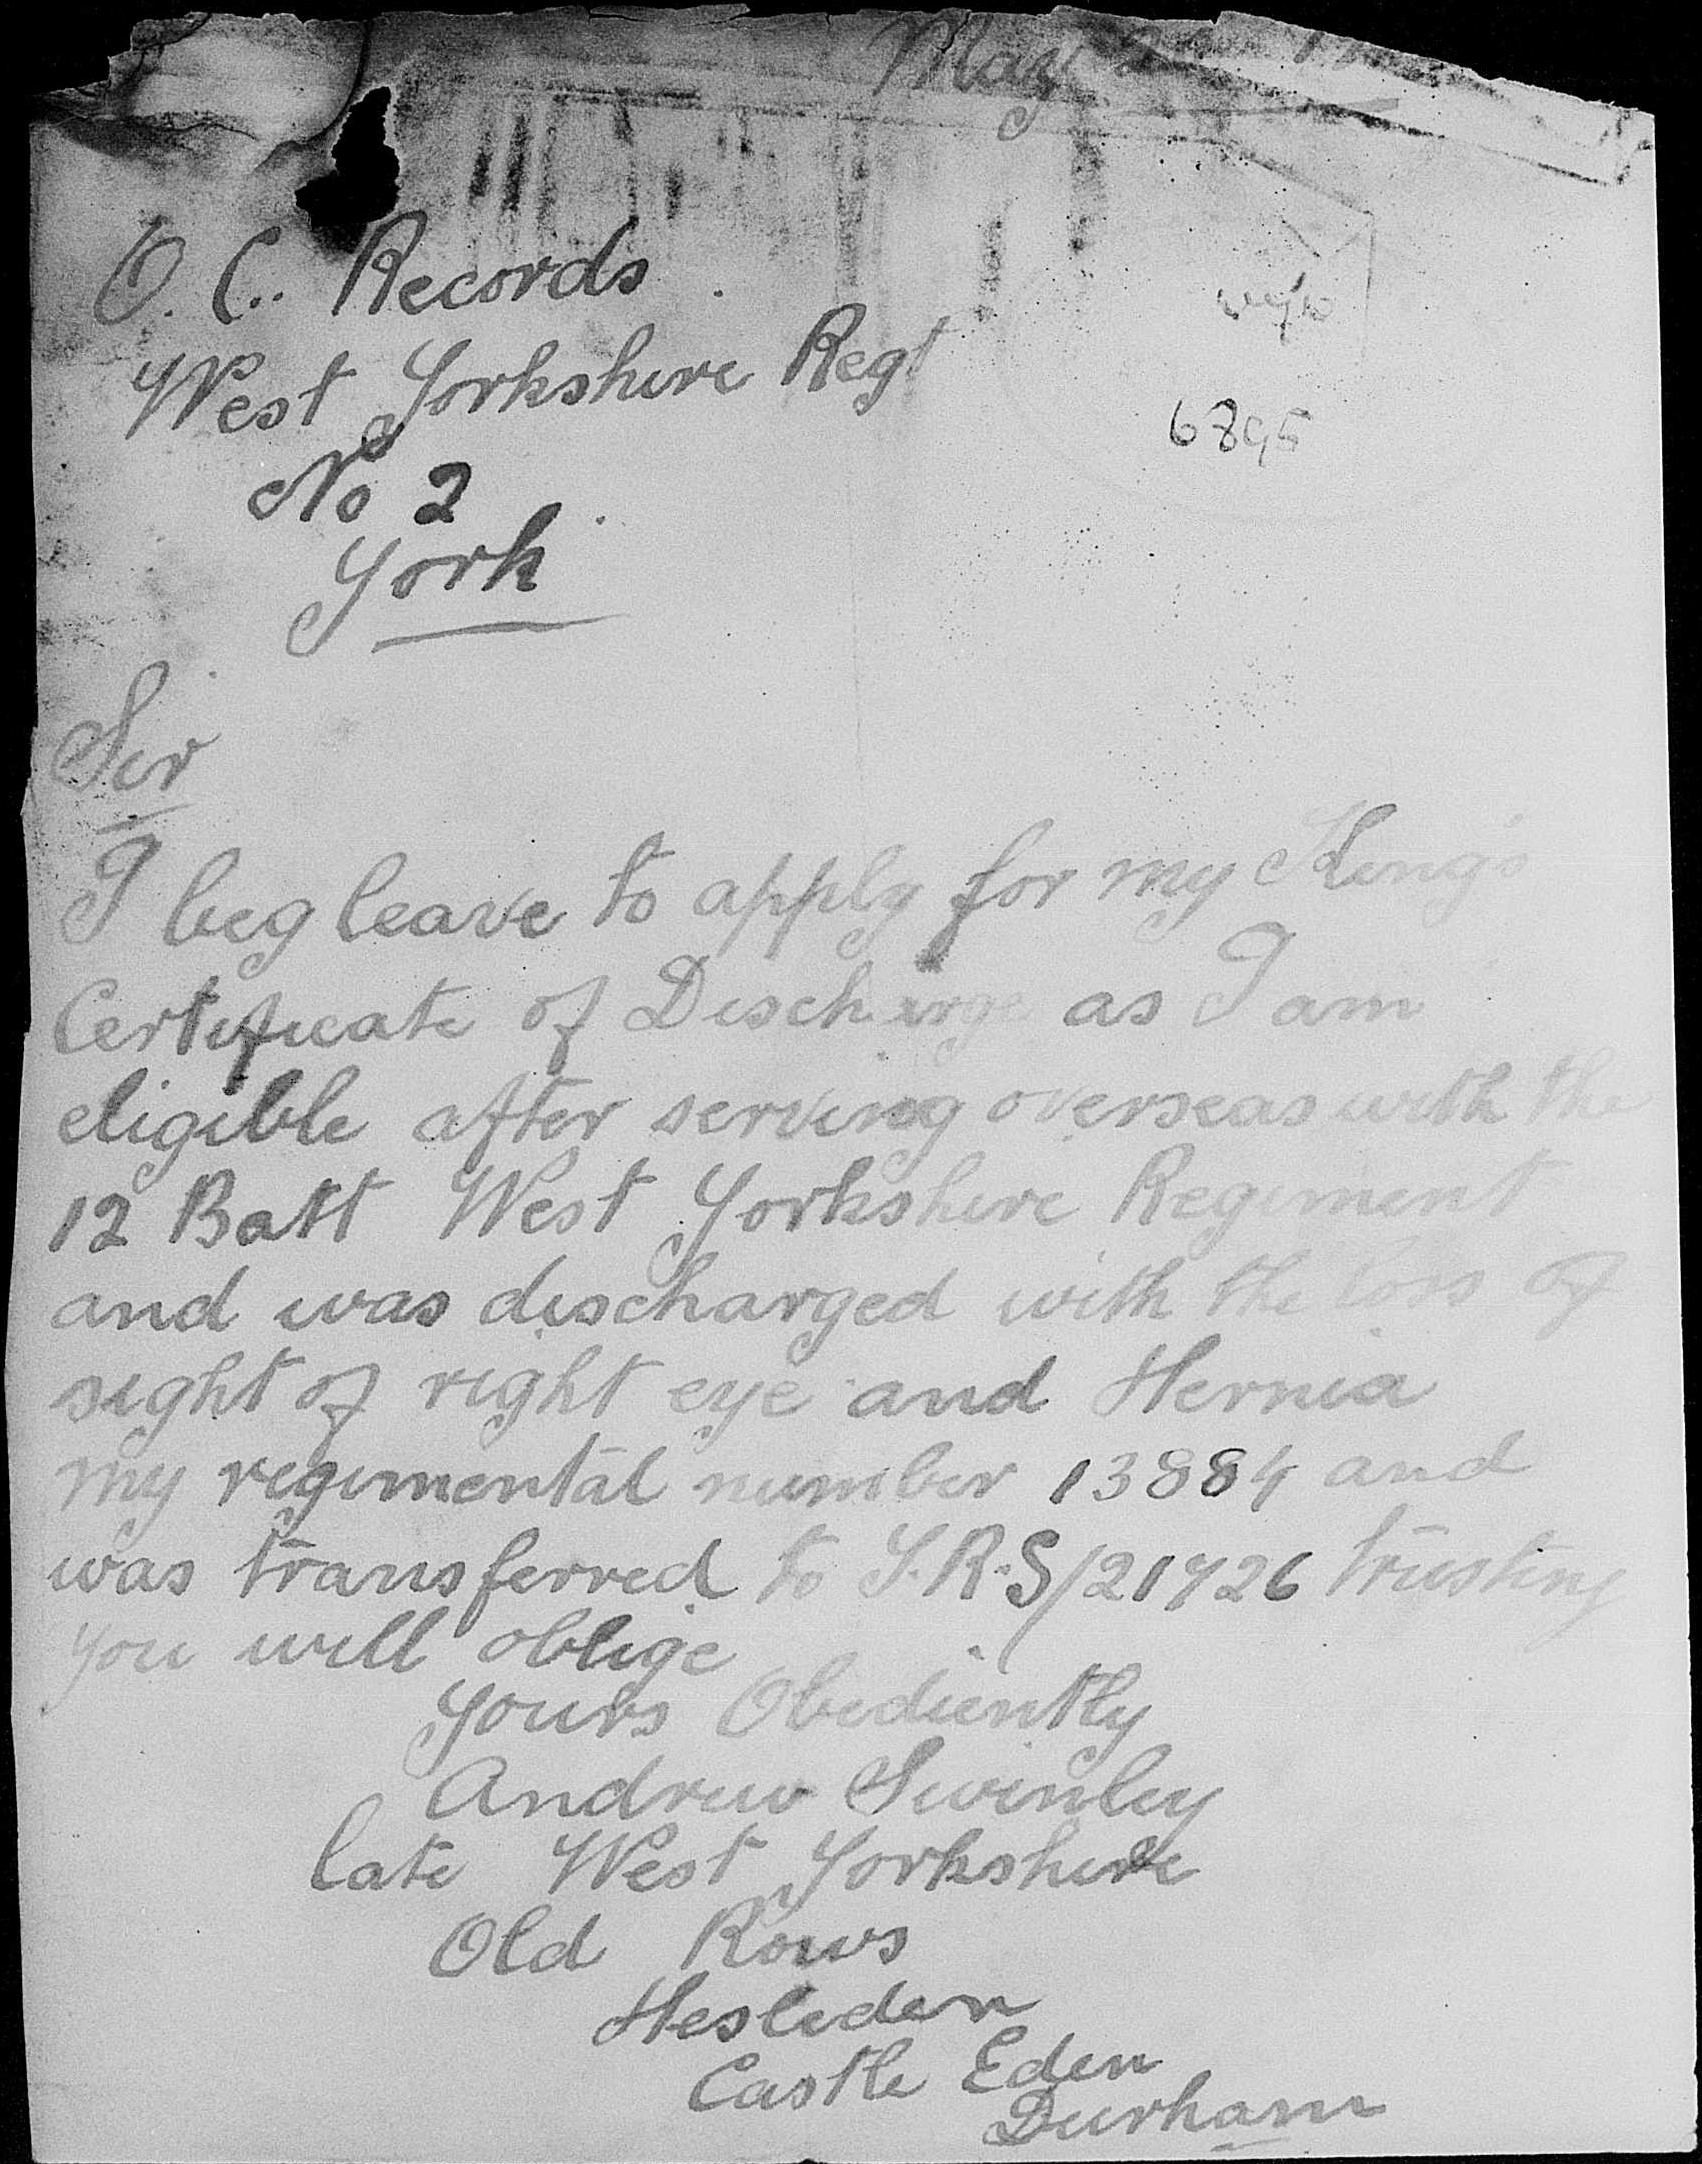 May
O. C. Records
West Yorkshire Regt
6895
No 2
York
Sir
I beg leave to apply for my Kings
Certificate of Discharge as I am
eligible after serving overseas with the
12 Batt West Yorkshire Regiment
and was discharged with the loss of
sight of right eye and Hernia
my regimental number 13884 and
was transferred to T.R.S/21726 trusting
you will oblige
Yours Obediently
Andrew Swinley
late West Yorkshire
Old Rows
Hesleden
Castle Eden
Durham